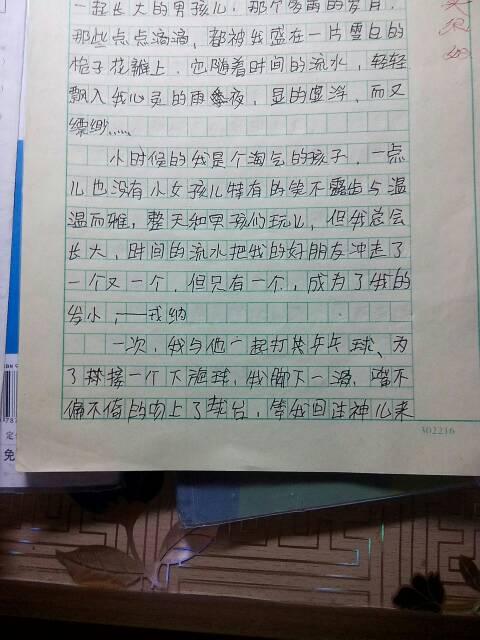 一起长大的男孩儿，那个多雨的岁月，
那些点点滴滴，都被我盛在一片雪白的
栀子花瓣上，它随着时间的流水，轻轻
飘入我心灵的雨夜，显的虚浮，而又
缥缈……
小时候的我是个淘气的孩子，一点
儿也没有小女孩儿特有的笑不露齿与温
温而雅，整天和男孩们玩儿，但我总会
长大，时间的流水把我的好朋友冲走了
一个又一个，但只有一个，成为了我的
发小，——戎纳
一次，我与他一起打乒乓球、为
了接一个下旋球，我脚下一滑，嘴不
偏不倚的吻上了球台，等我回过神儿来
302216
定价
免